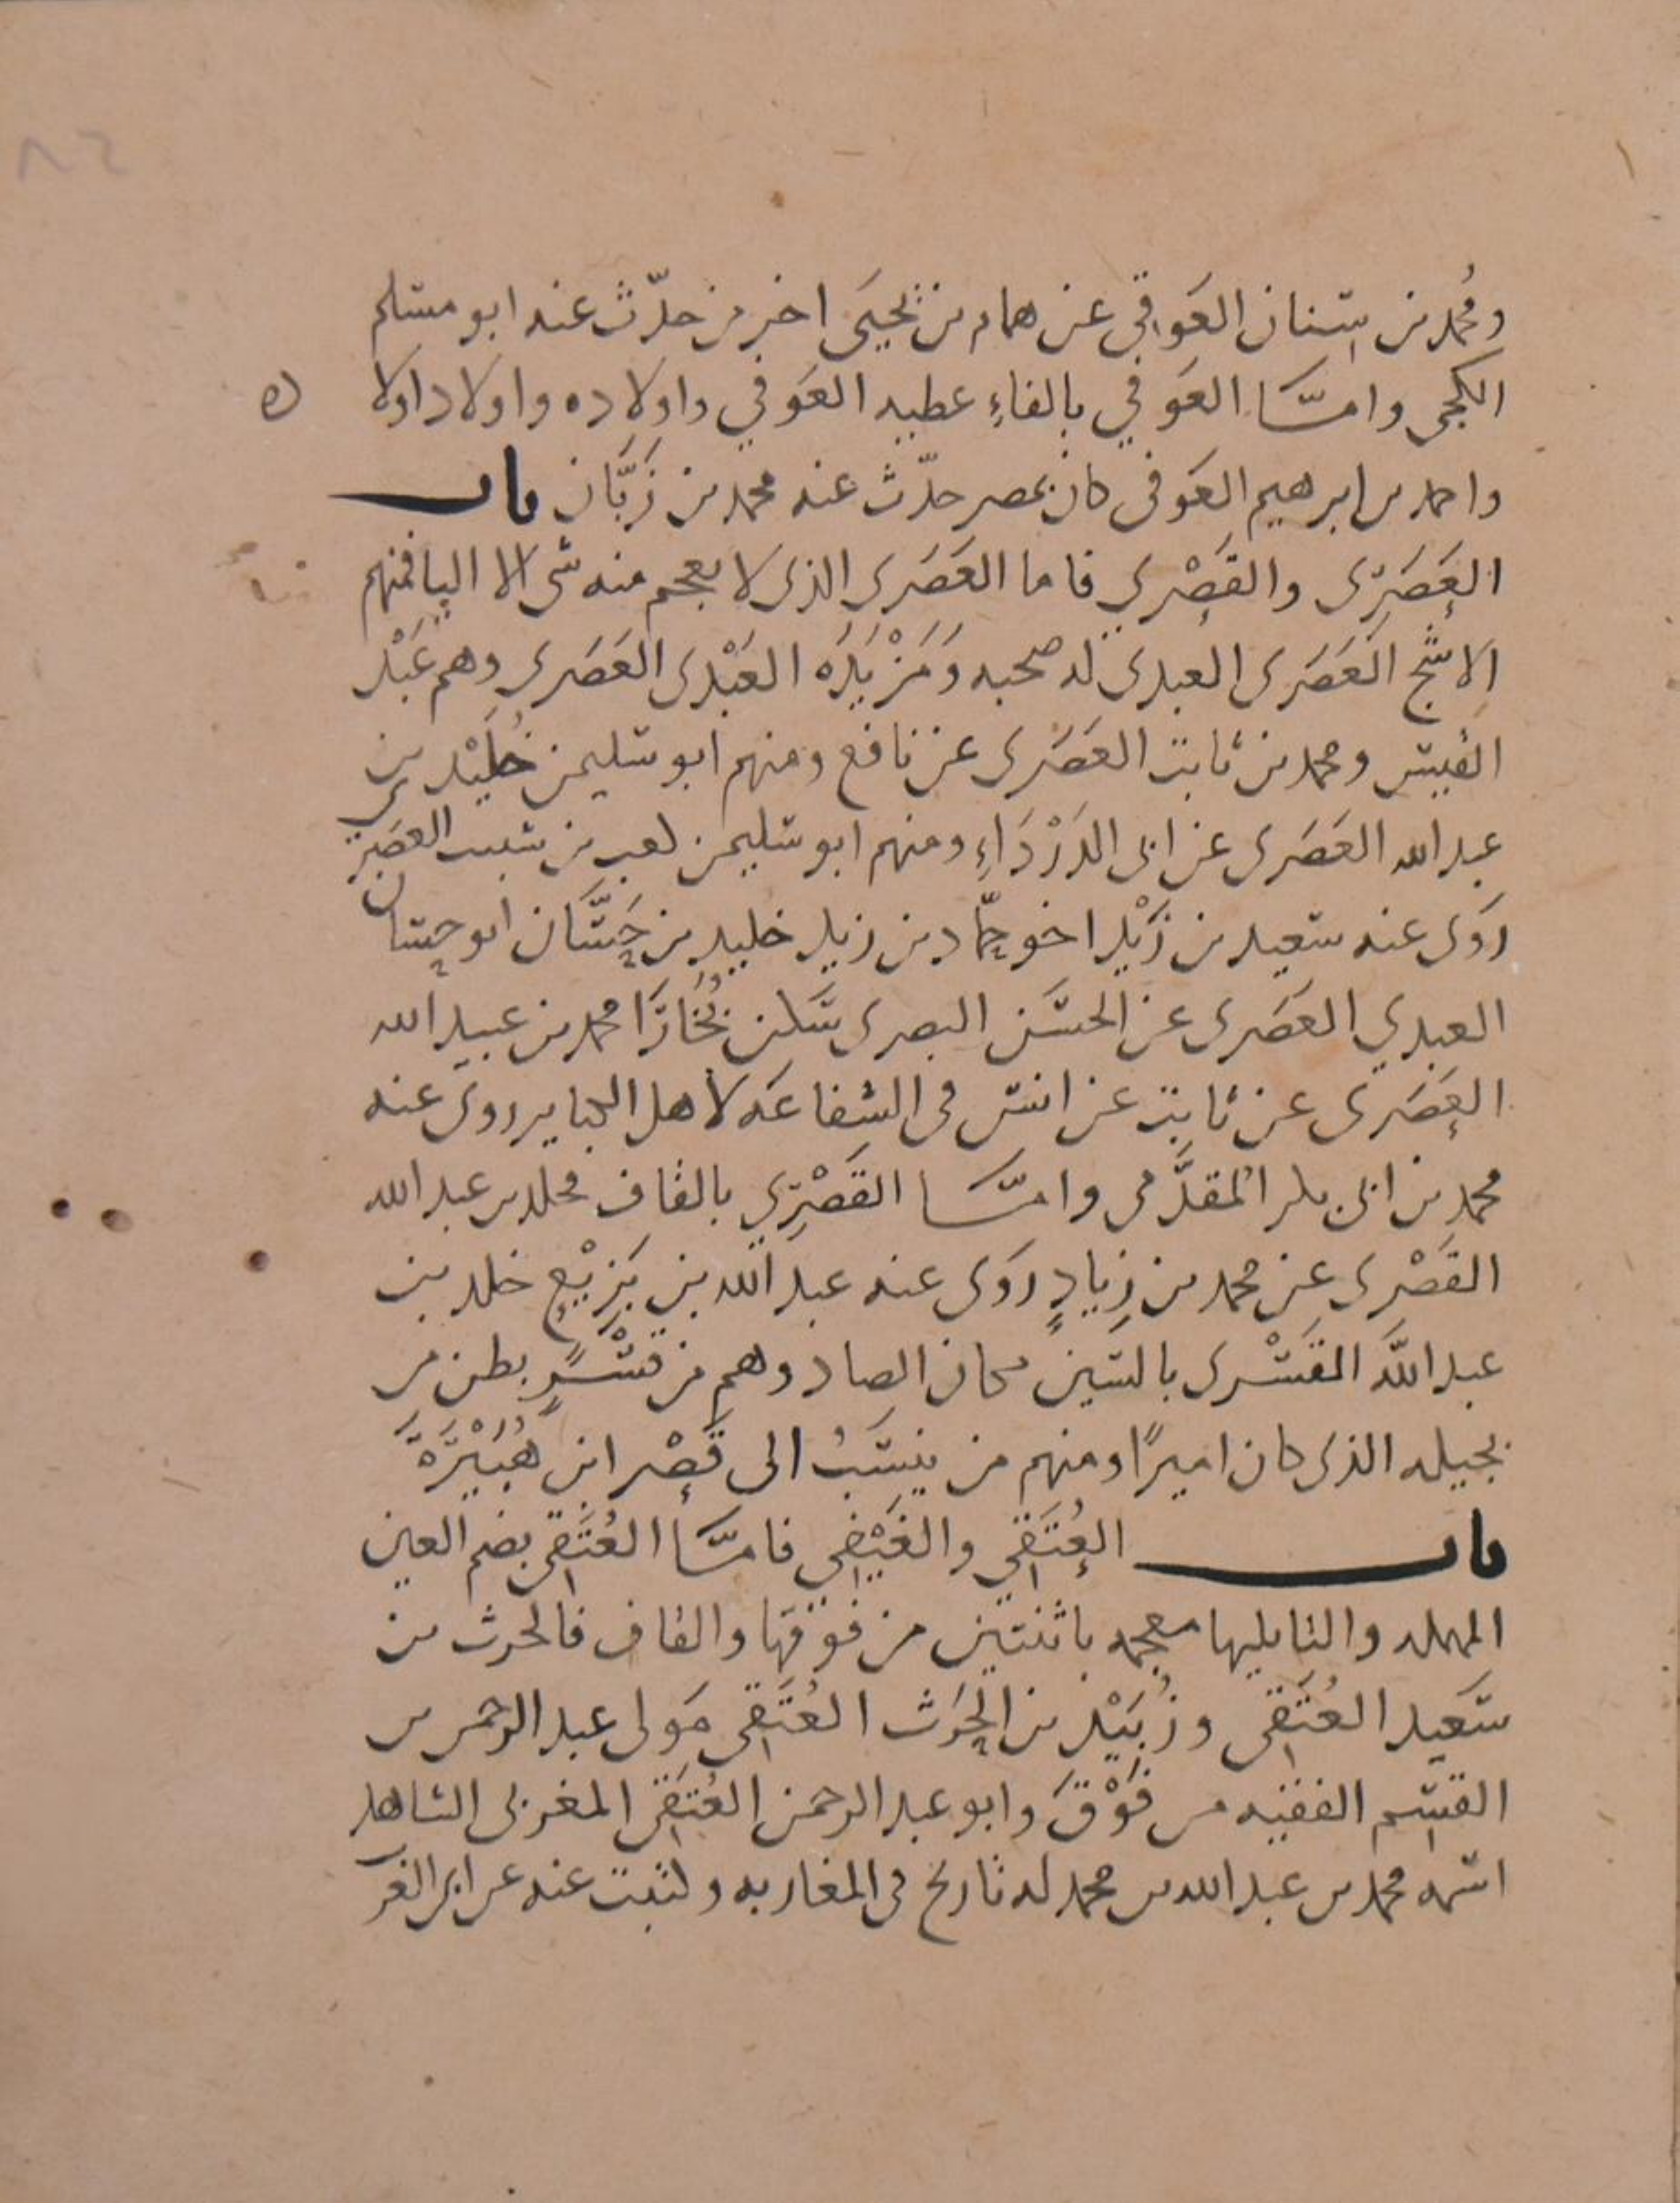 ومُحمد بن سِنان العَوَقِي عن همام بن يحيَى اخر من حدّث عنه ابو مسلم
الكجى وامَّا العَوفي بالفاءِ عطيه العَوفي واولاده واولاد اولا
ده
واحمد بن ابرهيم العَوفى كان بمصر حدّث عنه محمد بن زَبَّان باب
العَصَرِى والقَصْرِي فاما العَصَرى الذى لا يعجم منه شى الا اليا فمنهم
الاشَجّ العَصَرى العبدى له صحبه وَمَزْيَدَه العَبْدى العَصَرى وهم عَبْد
القيس ومحمد بن ثابت العَصَرى عن نافع ومنهم ابو سليمن خُلَيْد بن
عبد الله العَصَرى عن ابى الدَرْدَاءِ ومنهم ابو سليمن كعب بن شبيب العصَرِى
رَوَى عنه سعيد بن زَيْد اخو حمّاد بن زيد خليد بن حَسَّان ابو حسان
العبدي العَصَرى عن الحسَن البصرى سَكن بُخَارَا محمد بن عبيد الله
العَصَرى عن ثابت عن انس فى الشفاعَه لاهل الكباير روى عنه
محمد بن ابى بكر المقدَّمى وامَّا القَصْرِي بالقاف مخلد بن عبد الله
القَصْرى عن محمد بن زِيادٍ رَوَى عنه عبد الله بن بَزِيْعٍ خلد بن
عبد اللَّه القَسْرى بالسَين مكان الصاد وهم من قَسْرٍ بطن من
بجيله الذى كان اميرًا ومنهم من ينسَبُ الى قَصْر ابن هُبَيْرَةَ
باب العُتَقِي والغَيْضِي فامَّا العُتَقِى بضم العين
المهمله والتا يليها معجمه باثنتين من فَوْقهَا والقاف فالحرث بن
سَعيد العُتَقِى وزُبَيْد بن الحِرَث العُتَقِى مَولى عبد الرحمن بن
القسم الفقيه من فَوْقَ وابو عبد الرحمن العُتَقِى المغربى الشاهد
اسمه محمد بن عبد الله بن محمد له تاريخ فى المغاربه وكتبت عنه عن